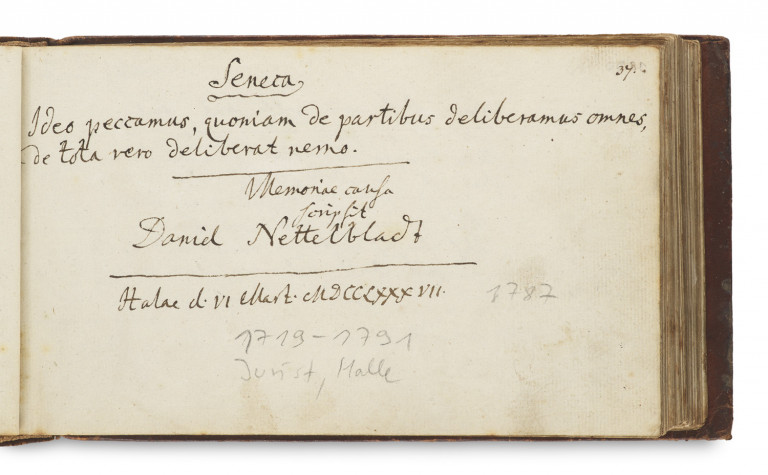 Seneca
Ideo peccamus, quoniam de partibus deliberamus omnes,
de tota vero deliberat nemo.
Memoriae causa
scripsit
Daniel Nettelbladt
Halae d. VI Mart. MDCCLXXXVII. 1787
1719-1791
Jurist, Halle